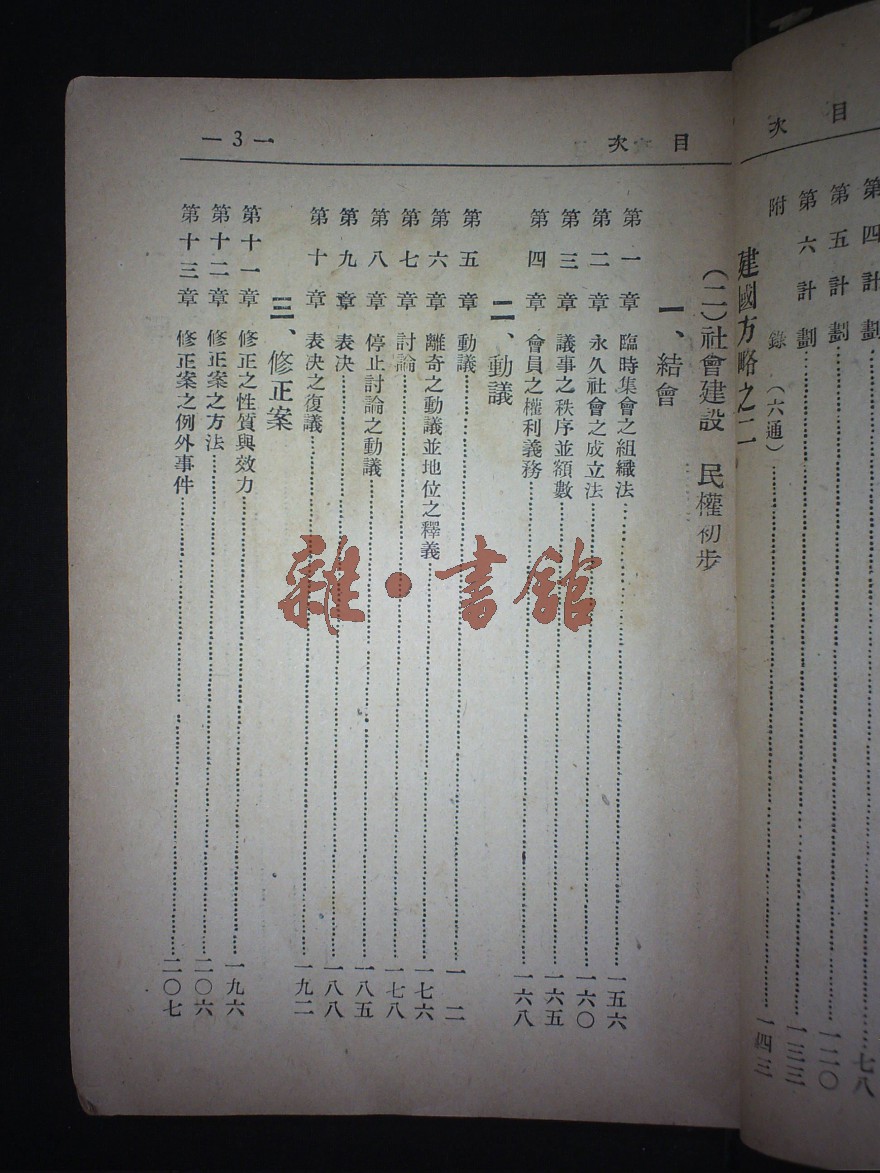 目次
第四計劃⋯⋯七八
第五計劃⋯⋯一二〇
第六計劃⋯⋯一三三
附錄(六通)⋯⋯一四三
建國方略之二
目次
—3—
(二)社會建設 民權初步
一、結會
第一章 臨時集會之組織法⋯⋯一五六
第二章 永久社會之成立法⋯⋯一六〇
第三章 議事之秩序並額數⋯⋯一六五
第四章 會員之權利義務⋯⋯一六八
二、動議
第五章 動議⋯⋯一 二
第六章 離奇之動議並地位之釋義⋯⋯一七六
第七章 討論⋯⋯一七八
第八章 停止討論之動議⋯⋯一八五
第九章 表决⋯⋯一八八
第十章 表决之復議⋯⋯一九二
三、修正案
第十一章 修正之性質與效力⋯⋯一九六
第十二章 修正案之方法⋯⋯二〇六
第十三章 修正案之例外事件⋯⋯二〇七
雜·書館